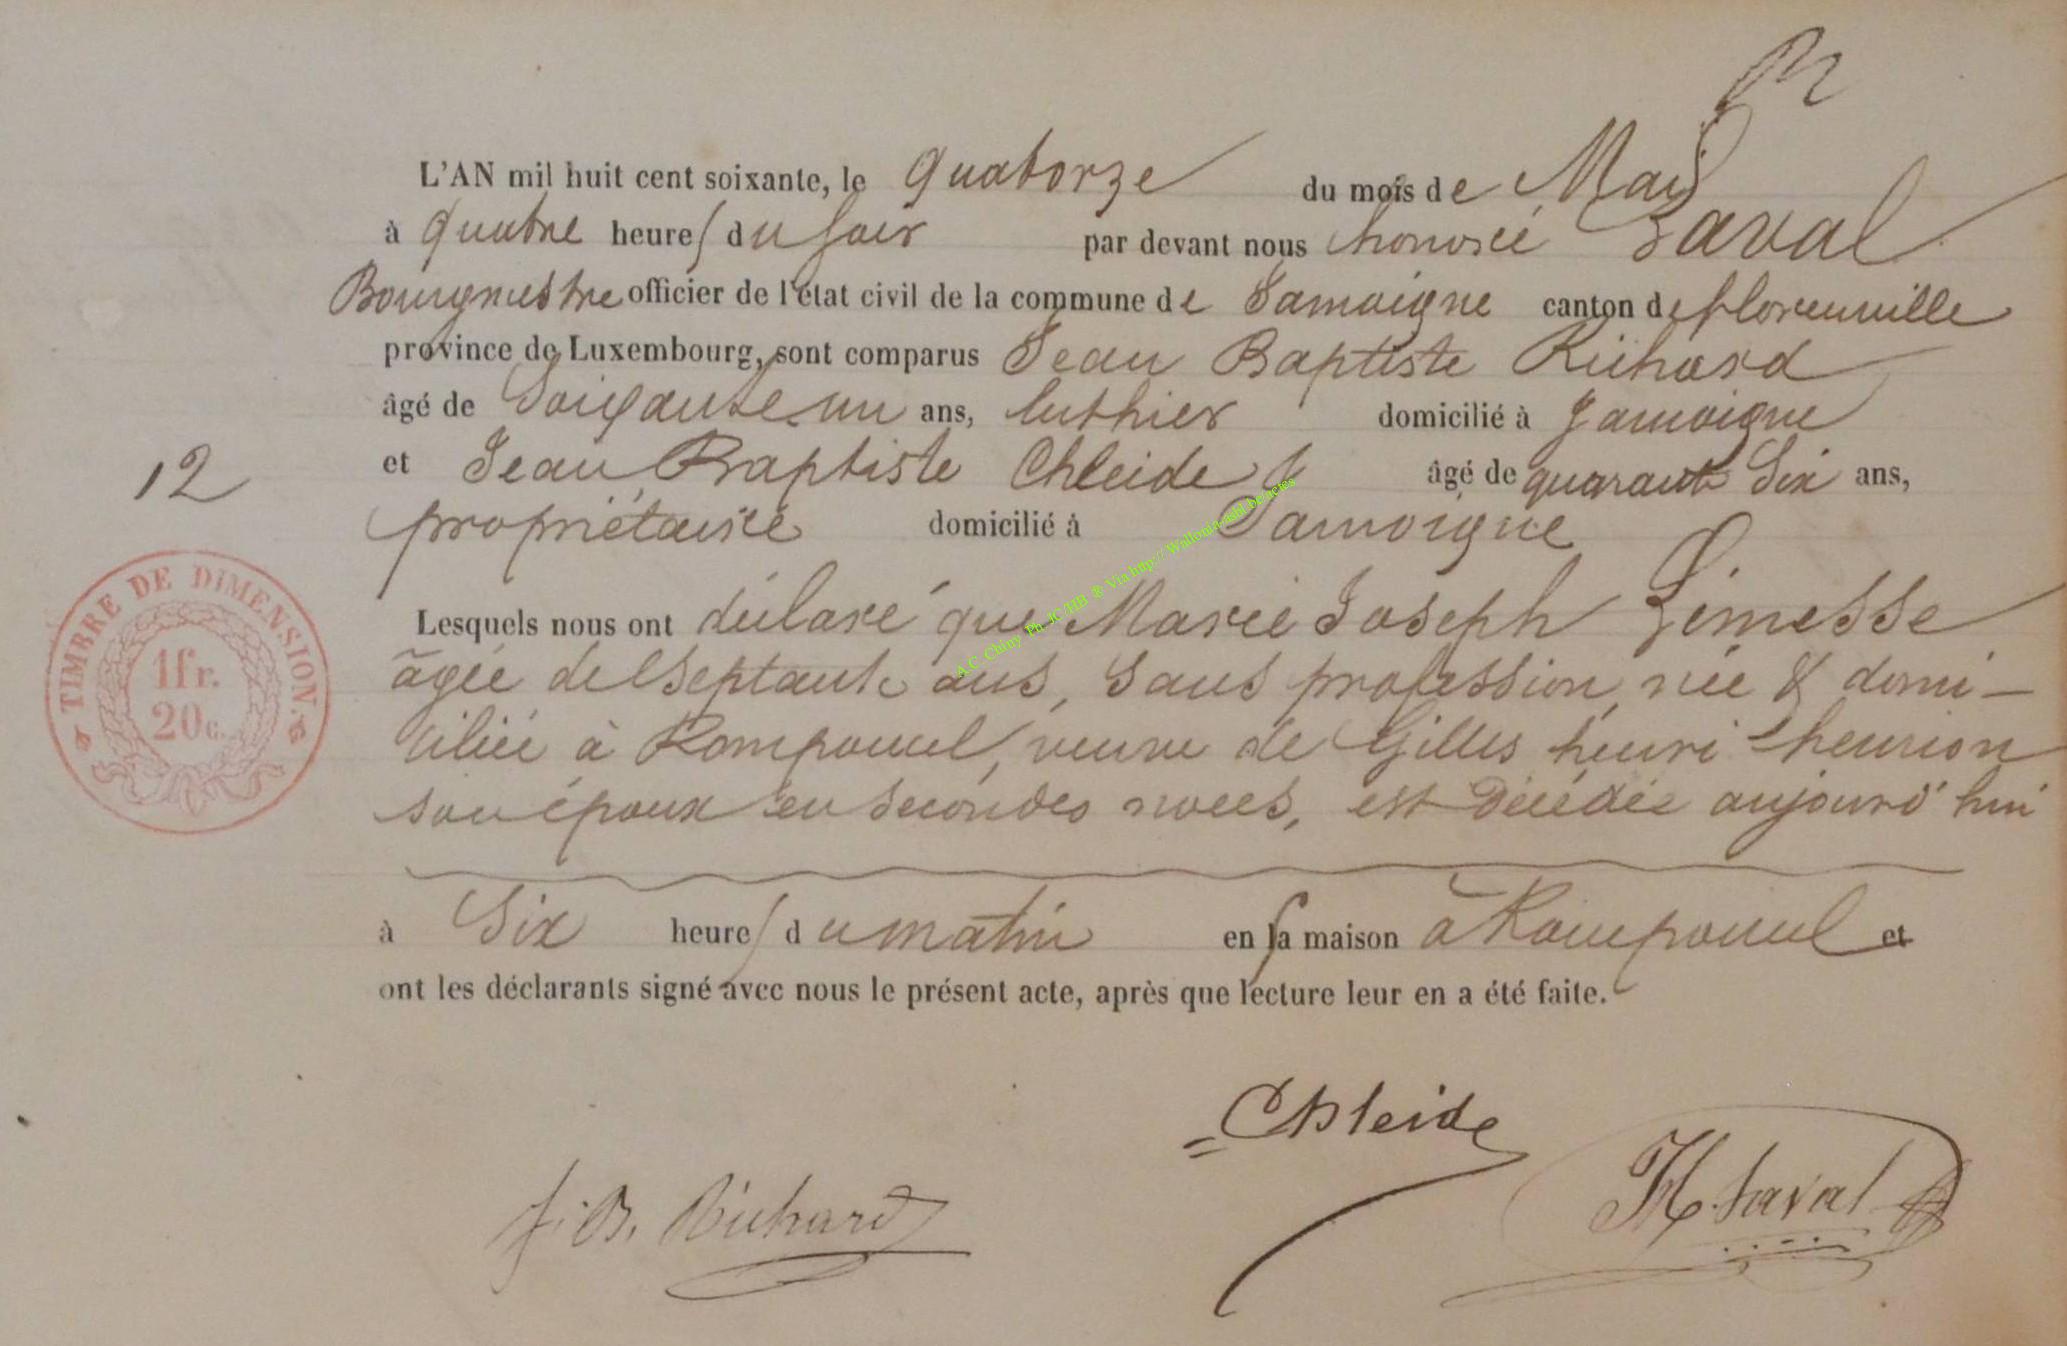 L'AN mil huit cent soixante, le quatorze du mois de Mai
à quatre heures du soir par devant nous honoré Laval
Bourgmestre officier de l'état civil de la commune de Jamoigne canton de florenville
province de Luxembourg, sont comparus Jean Baptiste Richard
âgé de Soixante un ans, luthier domicilié à Jamoigne
et Jean Baptiste Chleide âgé de quarante Six ans,
12
propriétaire domicilié à Jamoigne
Lesquels nous ont déclaré que Marie Joseph Limesse
âgée de Septante ans, Sans profession, née & domi-
ciliée à Romponcel, veuve de Gilles henri henrion
son époux en secondes noces, est décédée aujourd'hui
à Six heures du matin en sa maison à Romponcel et
ont les déclarants signé avec nous le présent acte, après que lecture leur en a été faite.
TIMBRE DE DIMENSION.
1 fr.
20 c.
A.C. Chiny Ph. JC/HB ® Via http://Wallonia-asbl.be/actes
Chleide
J. B. Richard
H. Laval